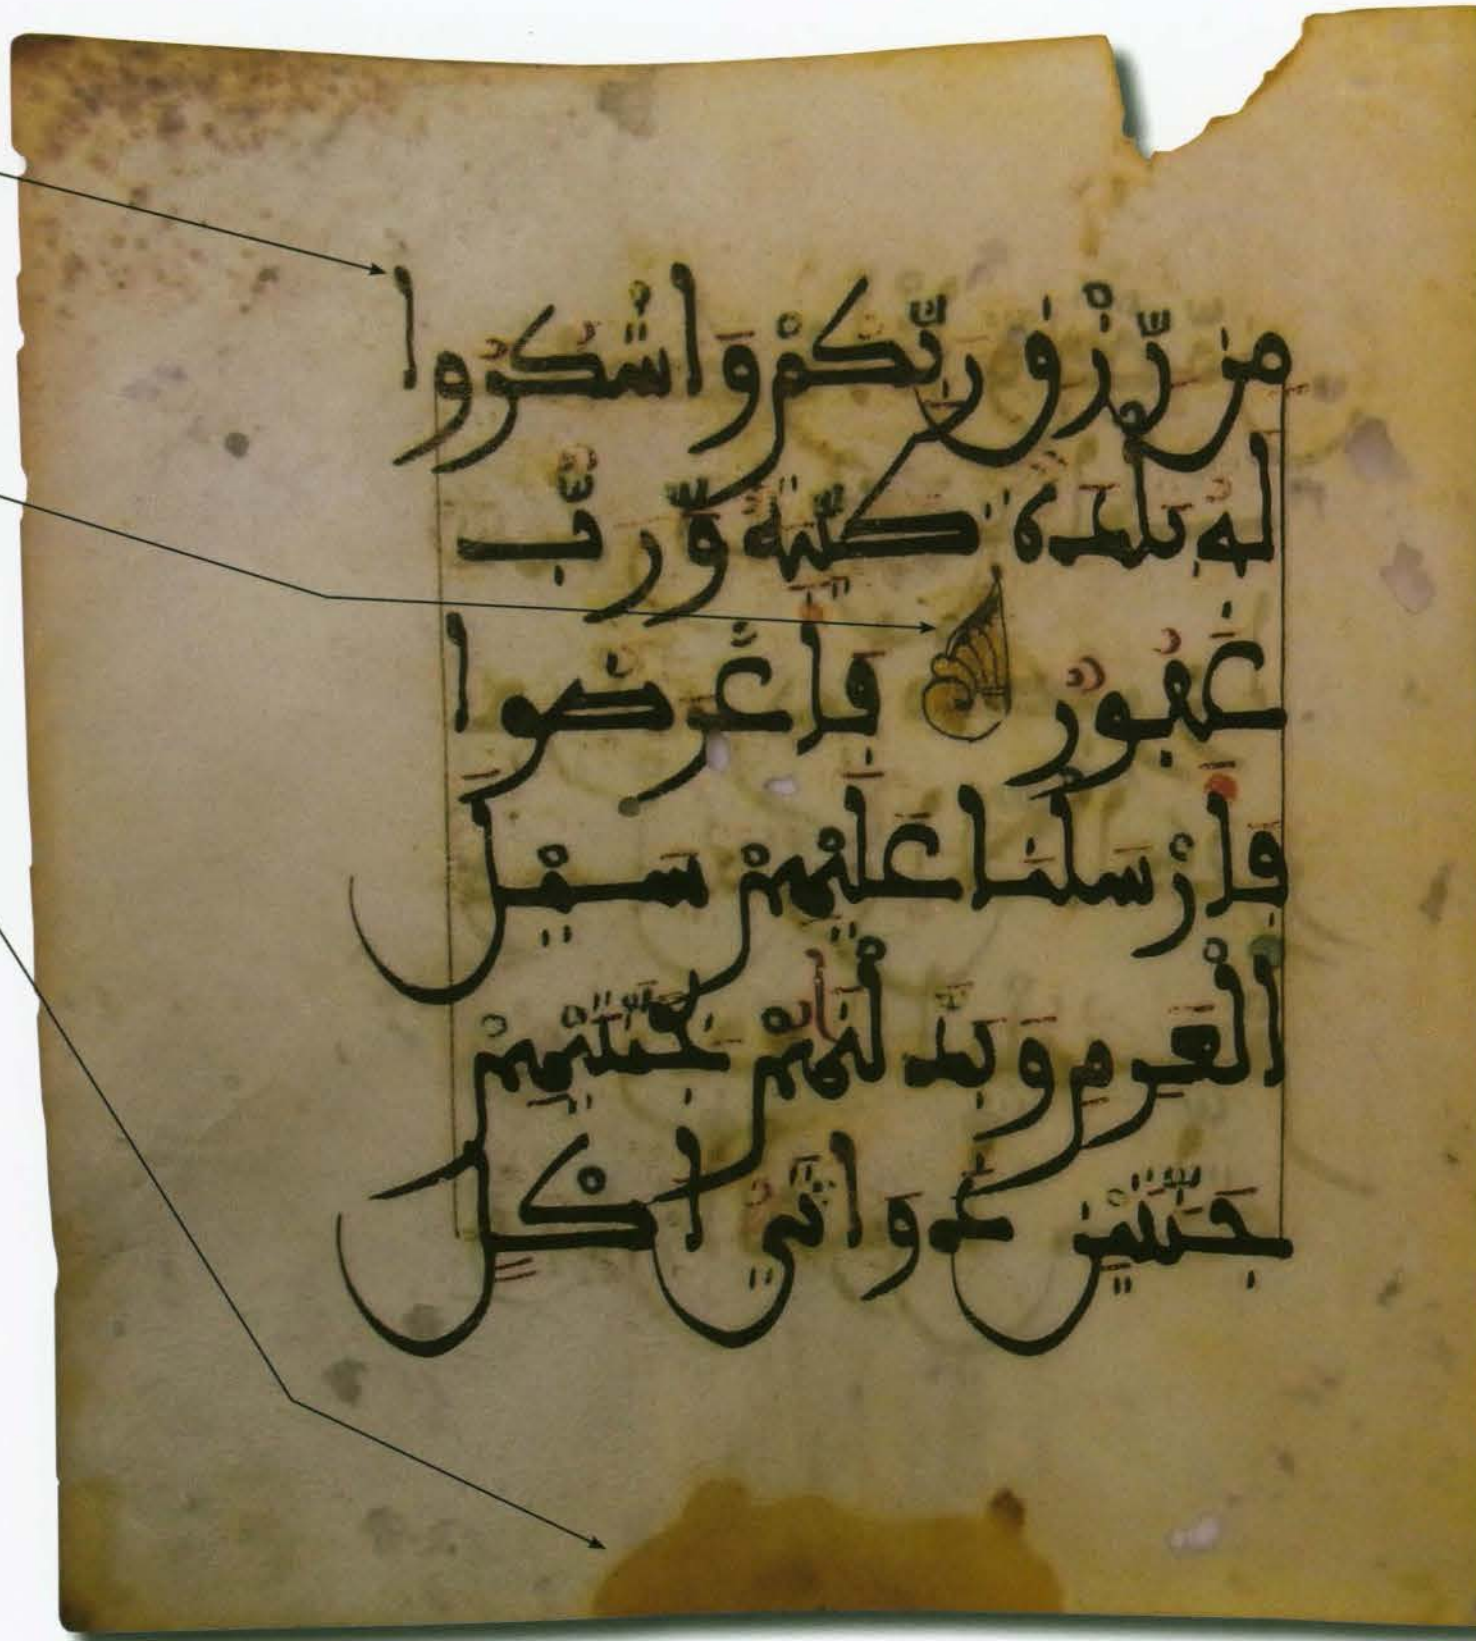 مِن رِّزْقِ رَبِّكُمْ وَاشْكُرُوا
لَهُ بَلْدَةٌ طَيِّبَةٌ وَّرَبٌّ
غَفُورٌ فَأَعْرَضُوا
فَأَرْسَلْنَا عَلَيْهِمْ سَيْلَ
الْعَرِمِ وَبَدَّلْنَٰهُمْ بِجَنَّتَيْهِمْ
جَنَّتَيْنِ ذَوَاتَيْ أُكْلٍ